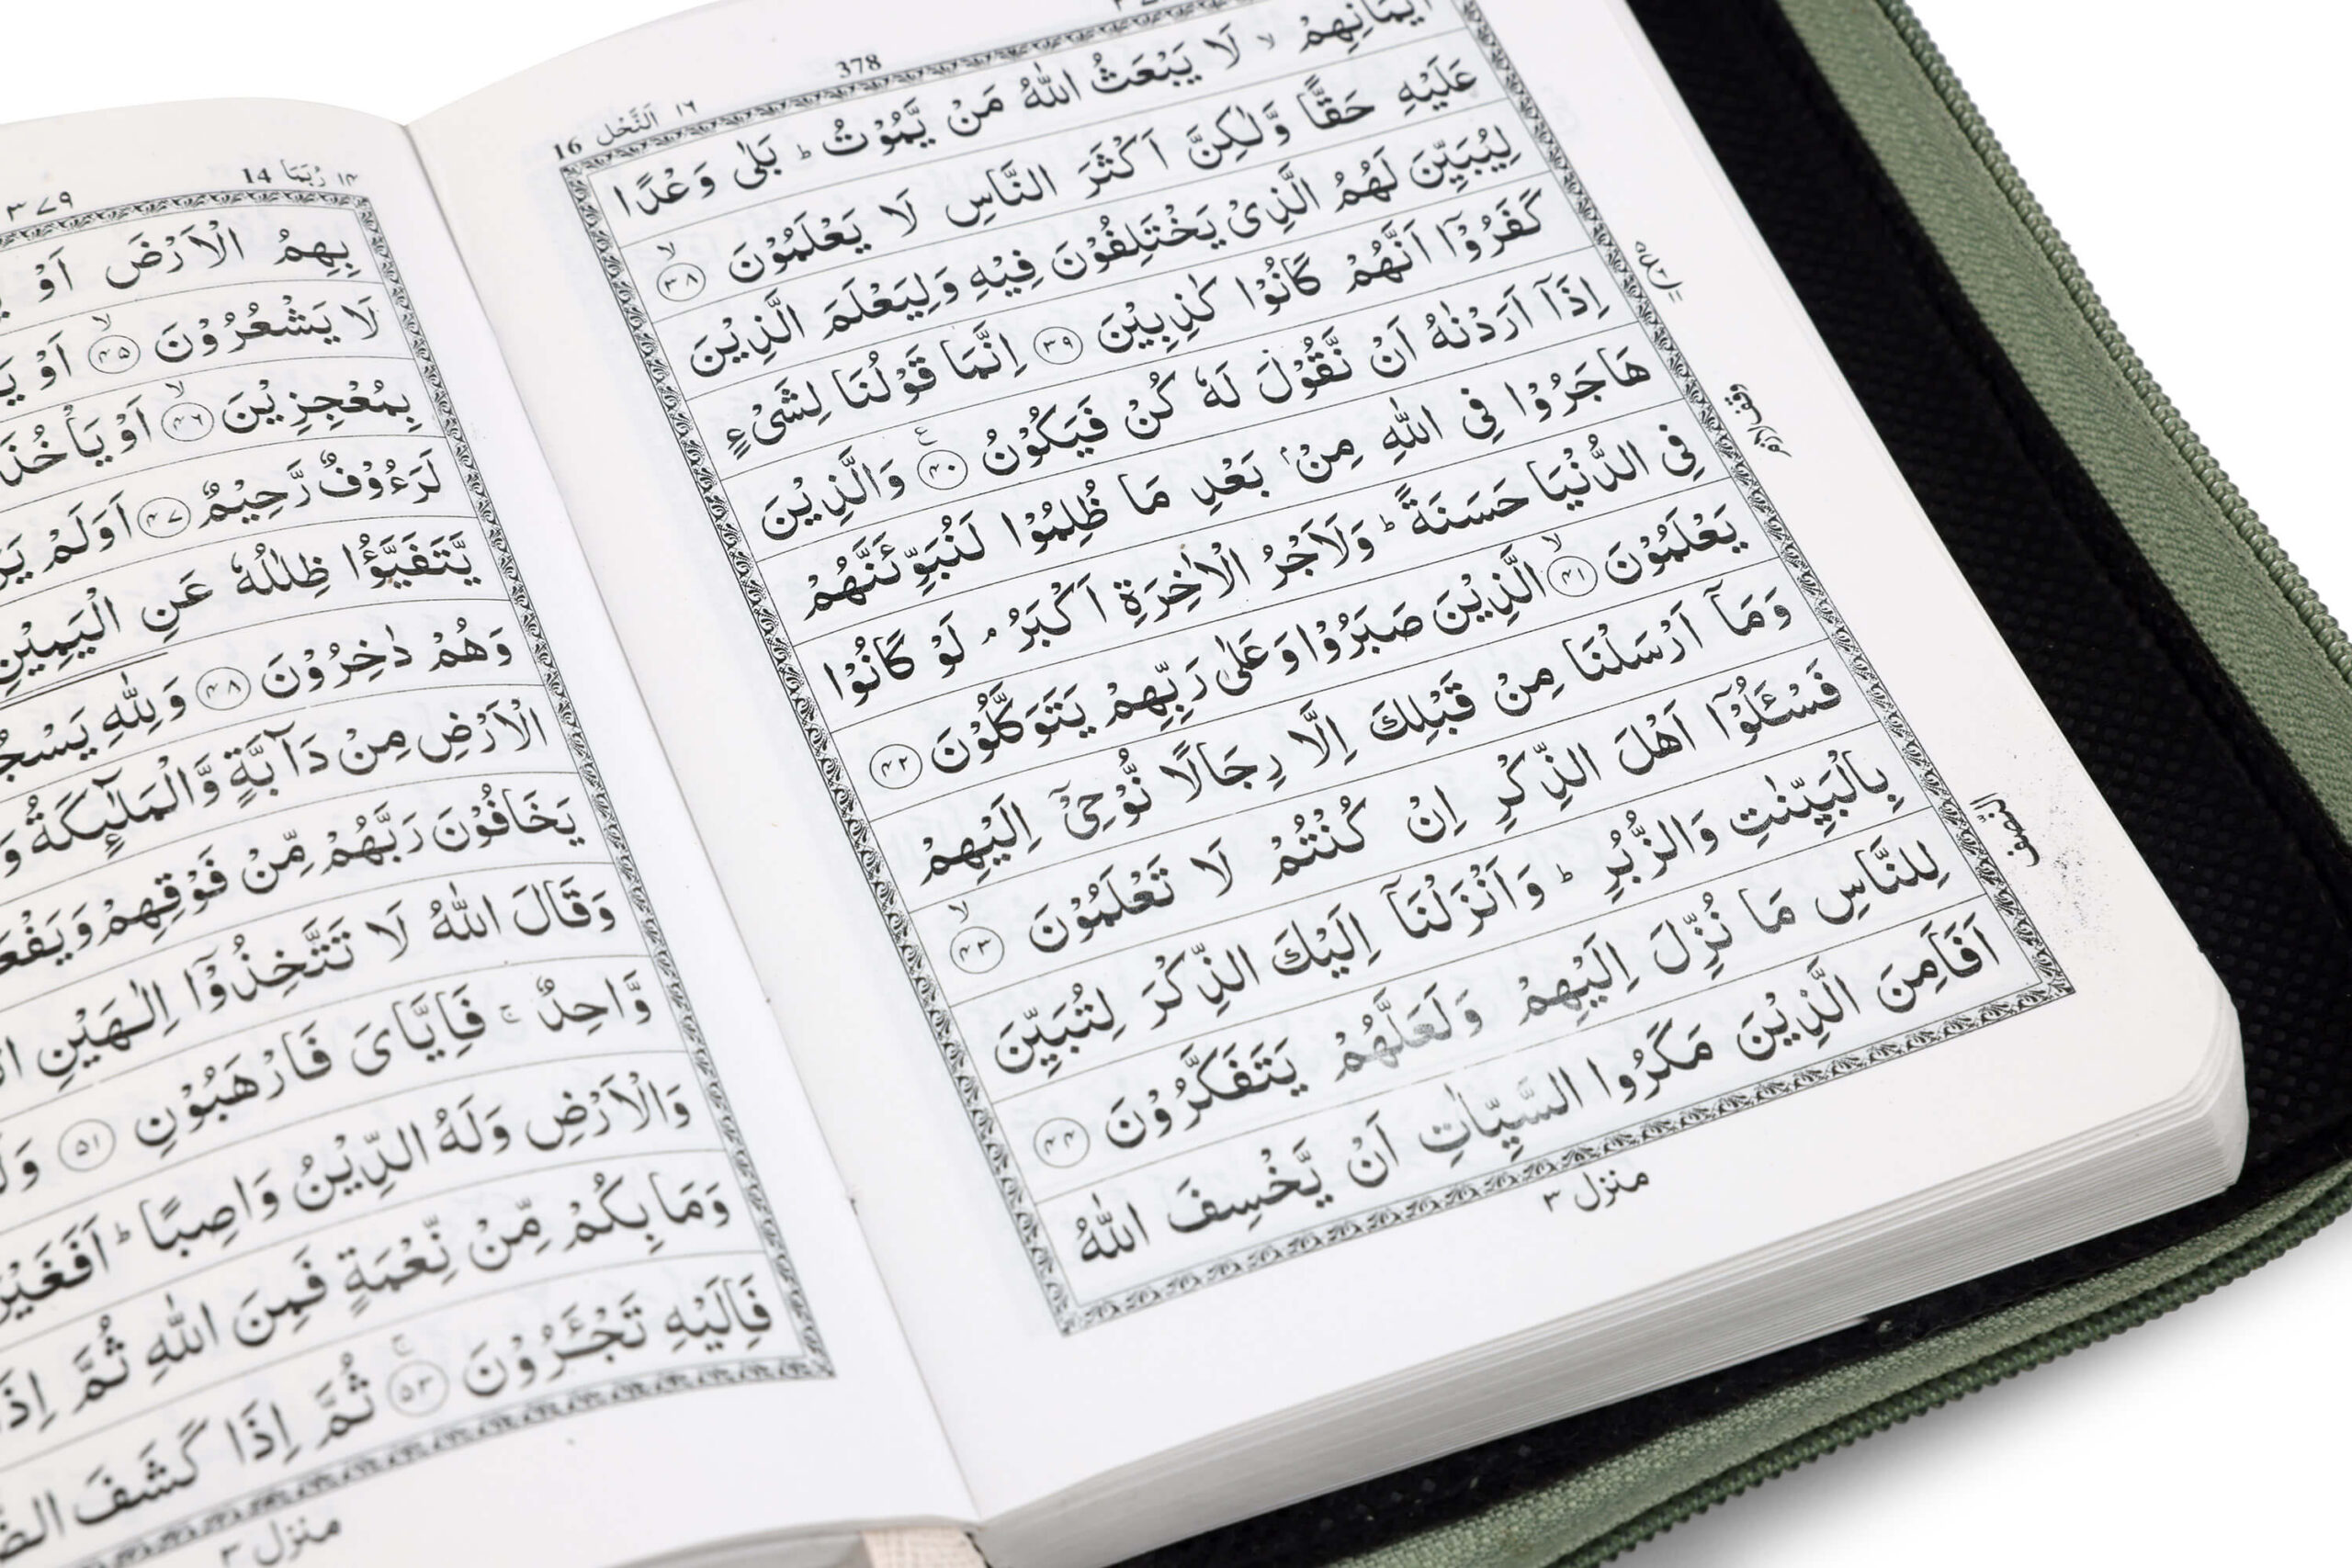 378
١٦ اَلنَّحْل 16
اَيْمَانِهِمْ ۙ لَا يَبْعَثُ اللّٰهُ مَنْ يَّمُوْتُ ؕ بَلٰى وَعْدًا
عَلَيْهِ حَقًّا وَّلٰكِنَّ اَكْثَرَ النَّاسِ لَا يَعْلَمُوْنَ ۙ﴿۳۸﴾
لِيُبَيِّنَ لَهُمُ الَّذِىْ يَخْتَلِفُوْنَ فِيْهِ وَلِيَعْلَمَ الَّذِيْنَ
كَفَرُوْۤا اَنَّهُمْ كَانُوْا كٰذِبِيْنَ ﴿۳۹﴾ اِنَّمَا قَوْلُنَا لِشَىْءٍ
اِذَاۤ اَرَدْنٰهُ اَنْ نَّقُوْلَ لَهٗ كُنْ فَيَكُوْنُ ﴿۴۰﴾ؑ وَالَّذِيْنَ
هَاجَرُوْا فِى اللّٰهِ مِنْۢ بَعْدِ مَا ظُلِمُوْا لَنُبَوِّئَنَّهُمْ
فِى الدُّنْيَا حَسَنَةً ؕ وَلَاَجْرُ الْاٰخِرَةِ اَكْبَرُ ۘ لَوْ كَانُوْا
يَعْلَمُوْنَ ۙ﴿۴۱﴾ الَّذِيْنَ صَبَرُوْا وَعَلٰى رَبِّهِمْ يَتَوَكَّلُوْنَ ﴿۴۲﴾
وَمَاۤ اَرْسَلْنَا مِنْ قَبْلِكَ اِلَّا رِجَالًا نُّوْحِىْۤ اِلَيْهِمْ
فَسْـَٔلُوْۤا اَهْلَ الذِّكْرِ اِنْ كُنْتُمْ لَا تَعْلَمُوْنَ ۙ﴿۴۳﴾
بِالْبَيِّنٰتِ وَالزُّبُرِ ؕ وَاَنْزَلْنَاۤ اِلَيْكَ الذِّكْرَ لِتُبَيِّنَ
لِلنَّاسِ مَا نُزِّلَ اِلَيْهِمْ وَلَعَلَّهُمْ يَتَفَكَّرُوْنَ ﴿۴۴﴾
اَفَاَمِنَ الَّذِيْنَ مَكَرُوا السَّيِّاٰتِ اَنْ يَّخْسِفَ اللّٰهُ
النصف
منزل ۳
۳۷۹
۱۴ رُبَمَا 14
بِهِمُ الْاَرْضَ اَوْ
لَا يَشْعُرُوْنَ ۙ﴿۴۵﴾ اَوْ
بِمُعْجِزِيْنَ ۙ﴿۴۶﴾ اَوْ
لَرَءُوْفٌ رَّحِيْمٌ ﴿۴۷﴾ اَوَلَمْ
يَّتَفَيَّؤُا ظِلٰلُهٗ عَنِ الْيَمِيْنِ
وَهُمْ دٰخِرُوْنَ ﴿۴۸﴾ وَلِلّٰهِ
الْاَرْضِ مِنْ دَآبَّةٍ وَّالْمَلٰٓئِكَةُ
يَخَافُوْنَ رَبَّهُمْ مِّنْ فَوْقِهِمْ
وَقَالَ اللّٰهُ لَا تَتَّخِذُوْۤا اِلٰـهَيْنِ
وَّاحِدٌ ۚ فَاِيَّاىَ فَارْهَبُوْنِ ﴿۵۱﴾
وَالْاَرْضِ وَلَهُ الدِّيْنُ وَاصِبًا ؕ
وَمَا بِكُمْ مِّنْ نِّعْمَةٍ فَمِنَ اللّٰهِ ثُمَّ
فَاِلَيْهِ تَجْـَٔرُوْنَ ۚ﴿۵۳﴾ ثُمَّ اِذَا كَشَفَ
منزل ۳